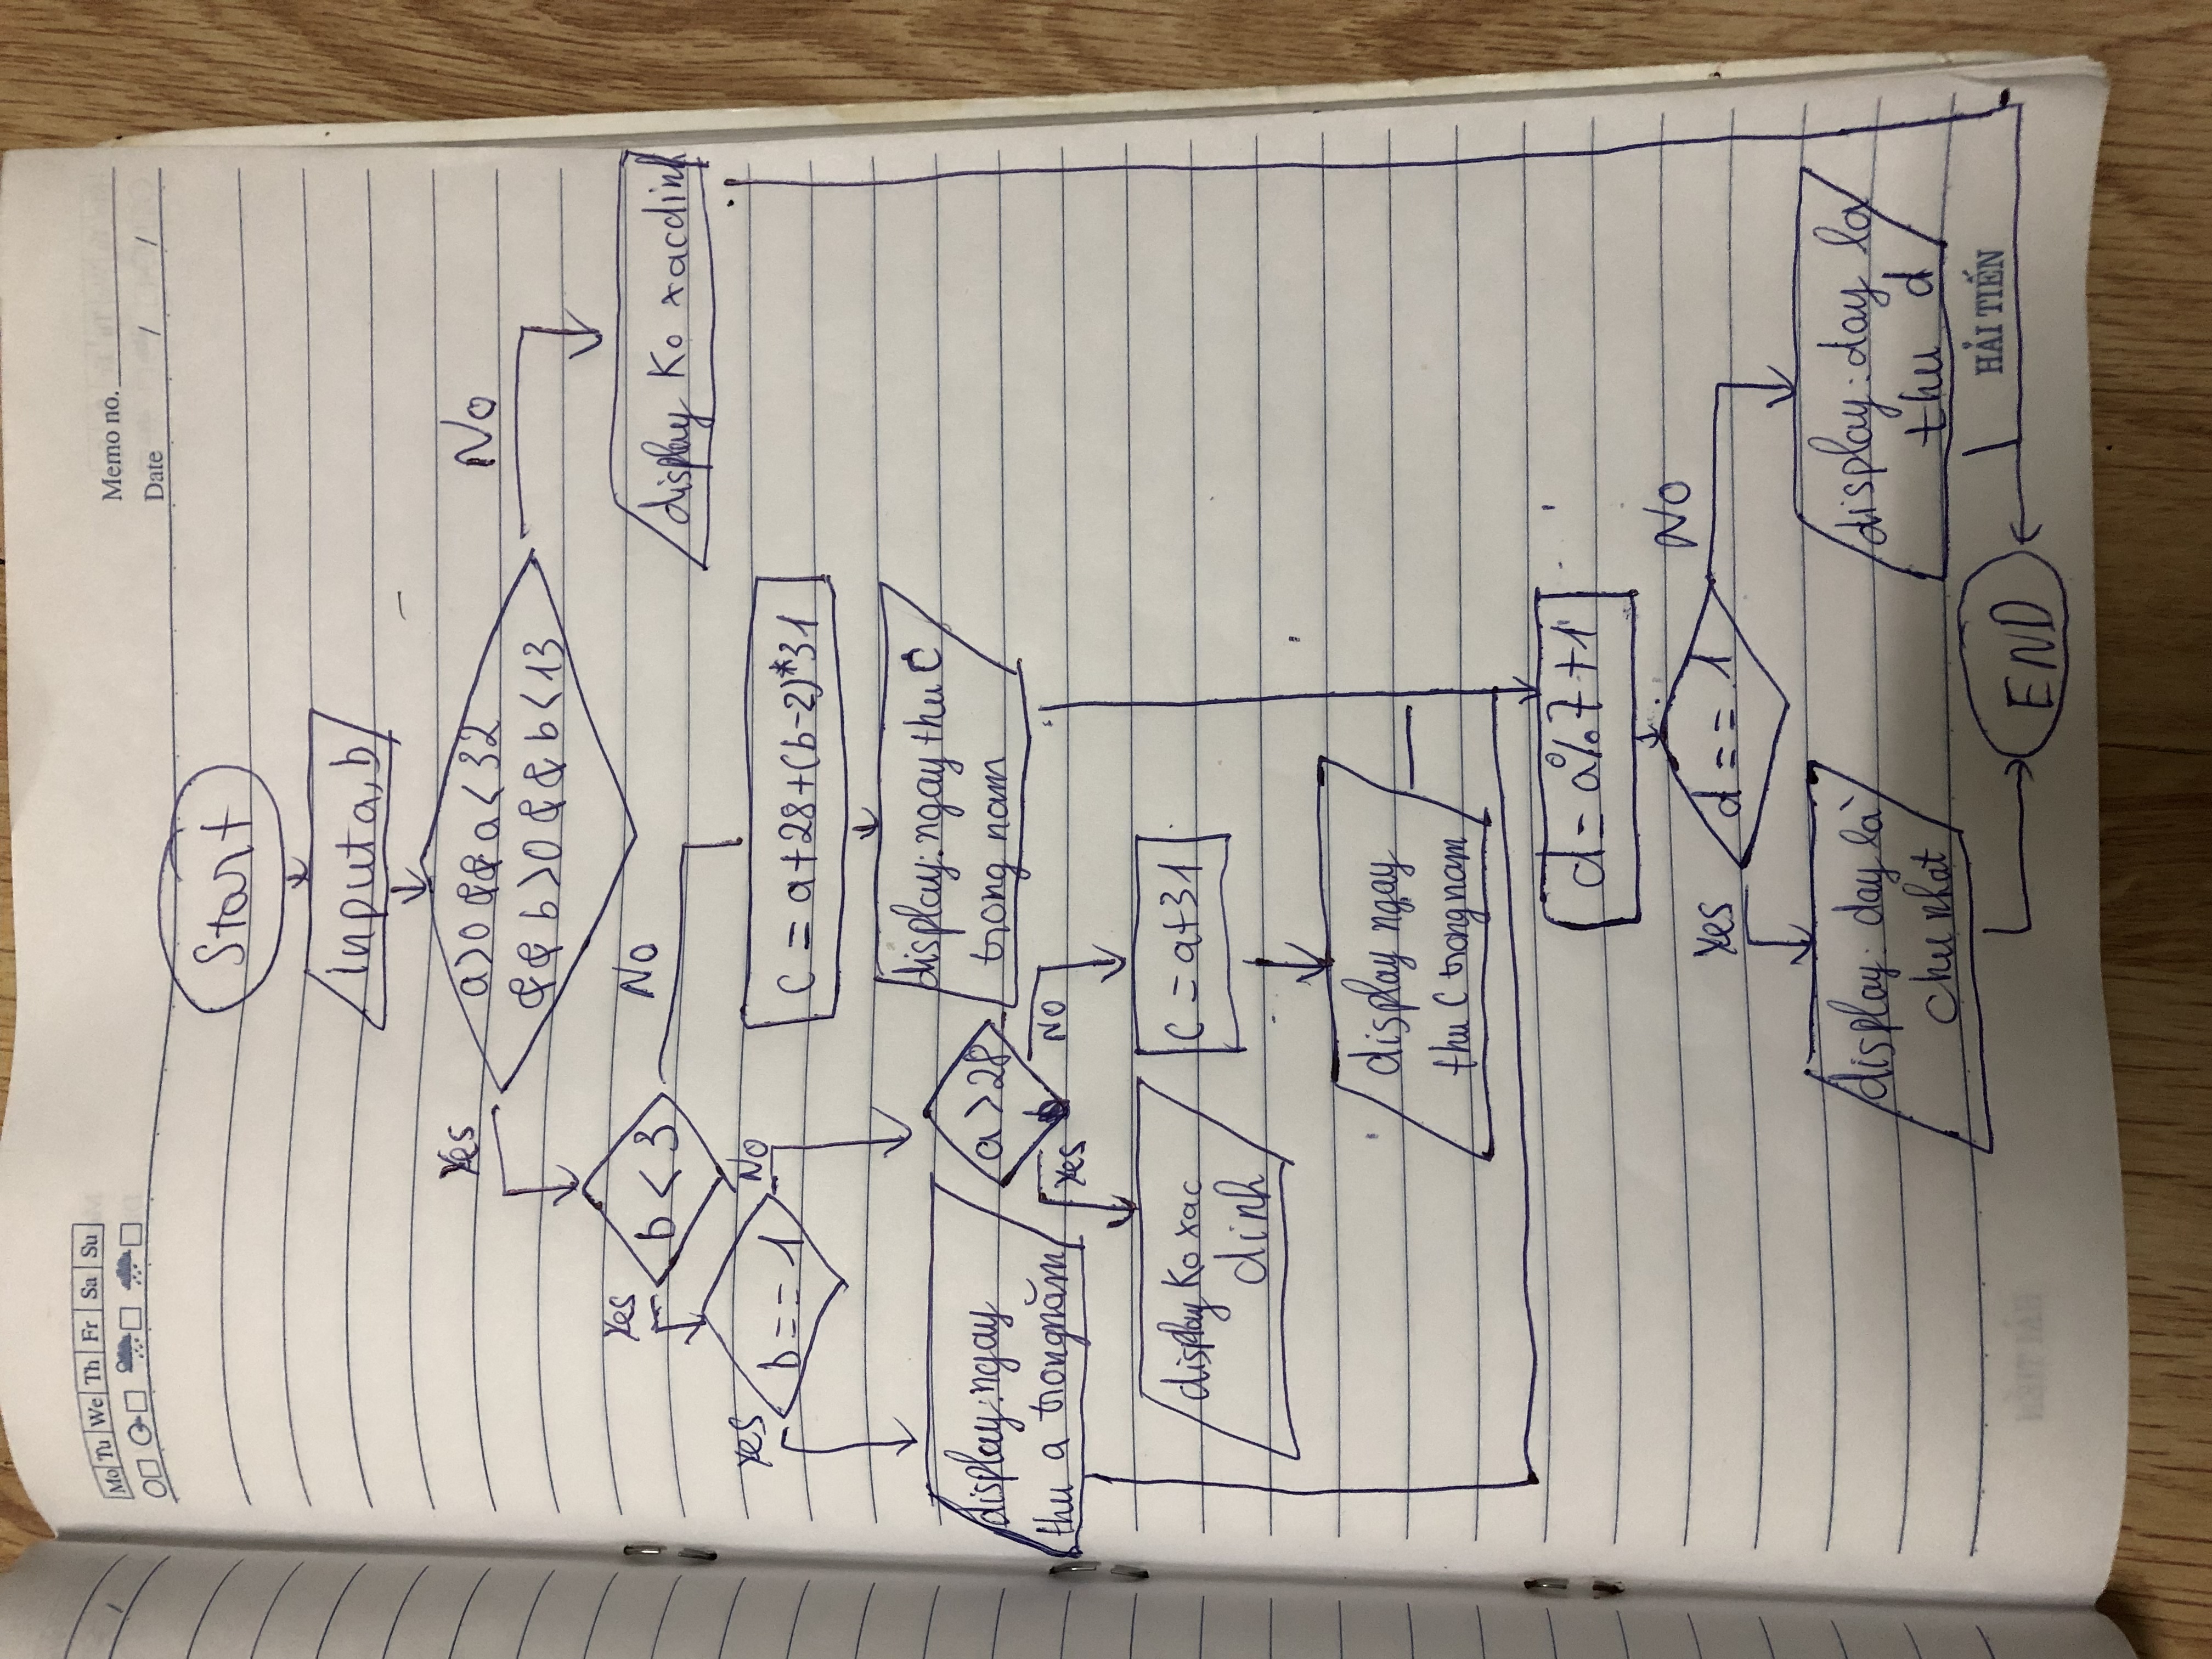 Mo Tu We Th Fr Sa Su
Memo no.
Date / /
Start
Input a, b
Yes
a>0 && a<32
&& b>0 && b<13
No
Yes
b < 3
No
display Ko xacdinh
Yes
b == 1
No
C = a+28+(b-2)*31
display: ngay
thu a trongnăm
a >28
display: ngay thu C
trong nam
Yes
NO
display Ko xac
dinh
C = a+31
display ngay
thu C trongnam
d = a%7 +1
Yes
d == 1
NO
display: day là
chu nhat
display: day la
thu d
HẢI TIẾN
END